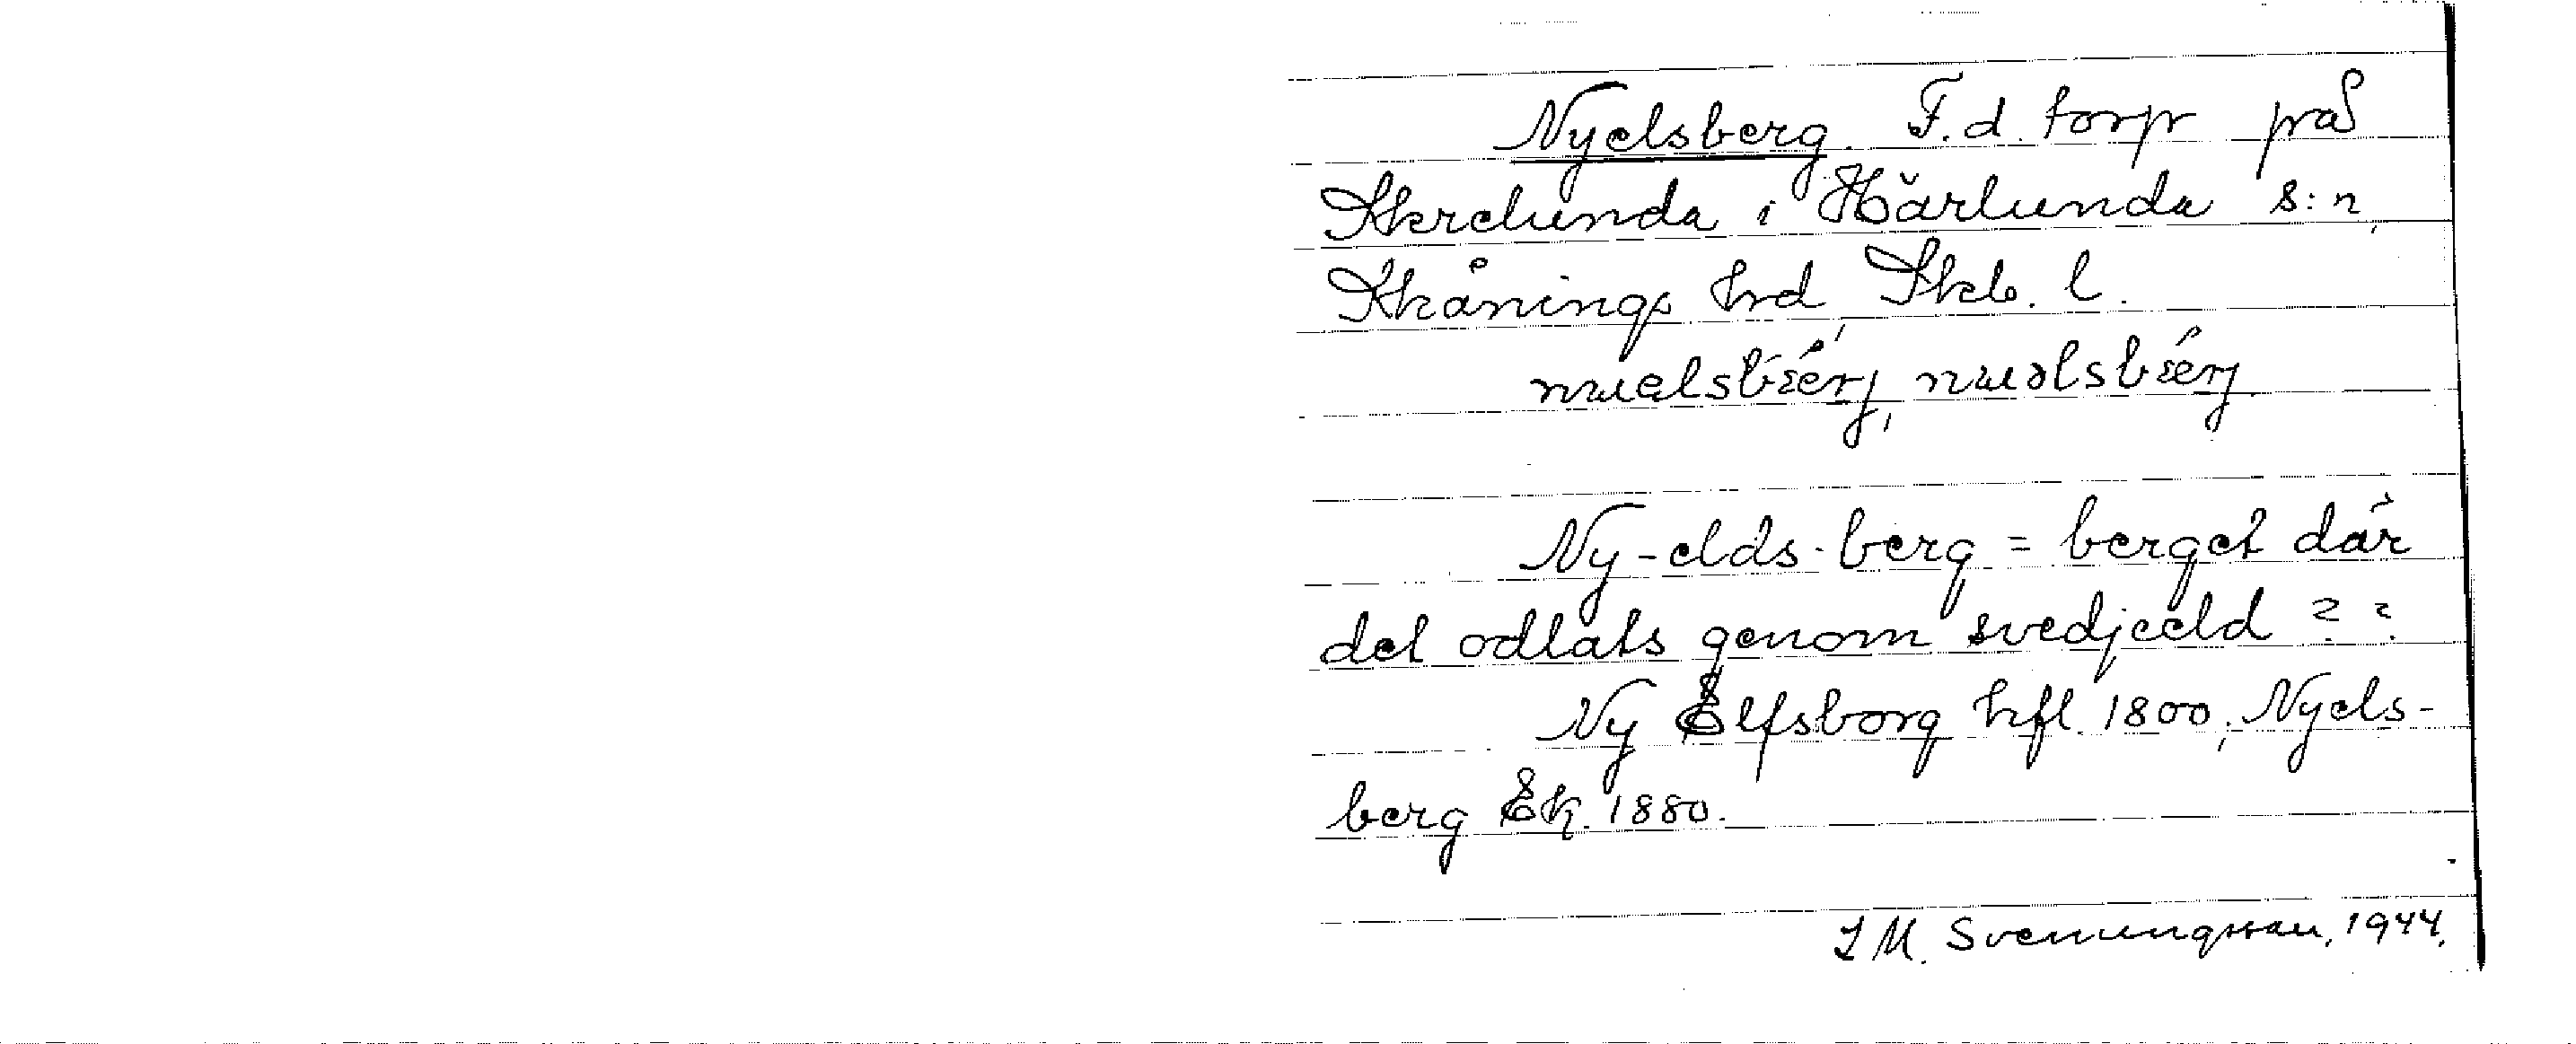 Nyelsberg. F.d. torp på
Skerlunda i Härlunda s:n,
Skånings hrd, Skb. l.
Ny-elds-berg = berget där
det odlats genom svedjeeld ? ?
Ny Elfsborg hfl. 1800; Nyels-
berg Ek. 1880.
I M. Svenungsson, 1944.